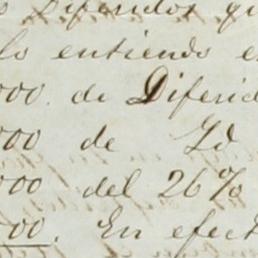 s Diferidos qu
lo entiendo e
000. de Diferid
000 de Id
000 del 26%
000. En efect